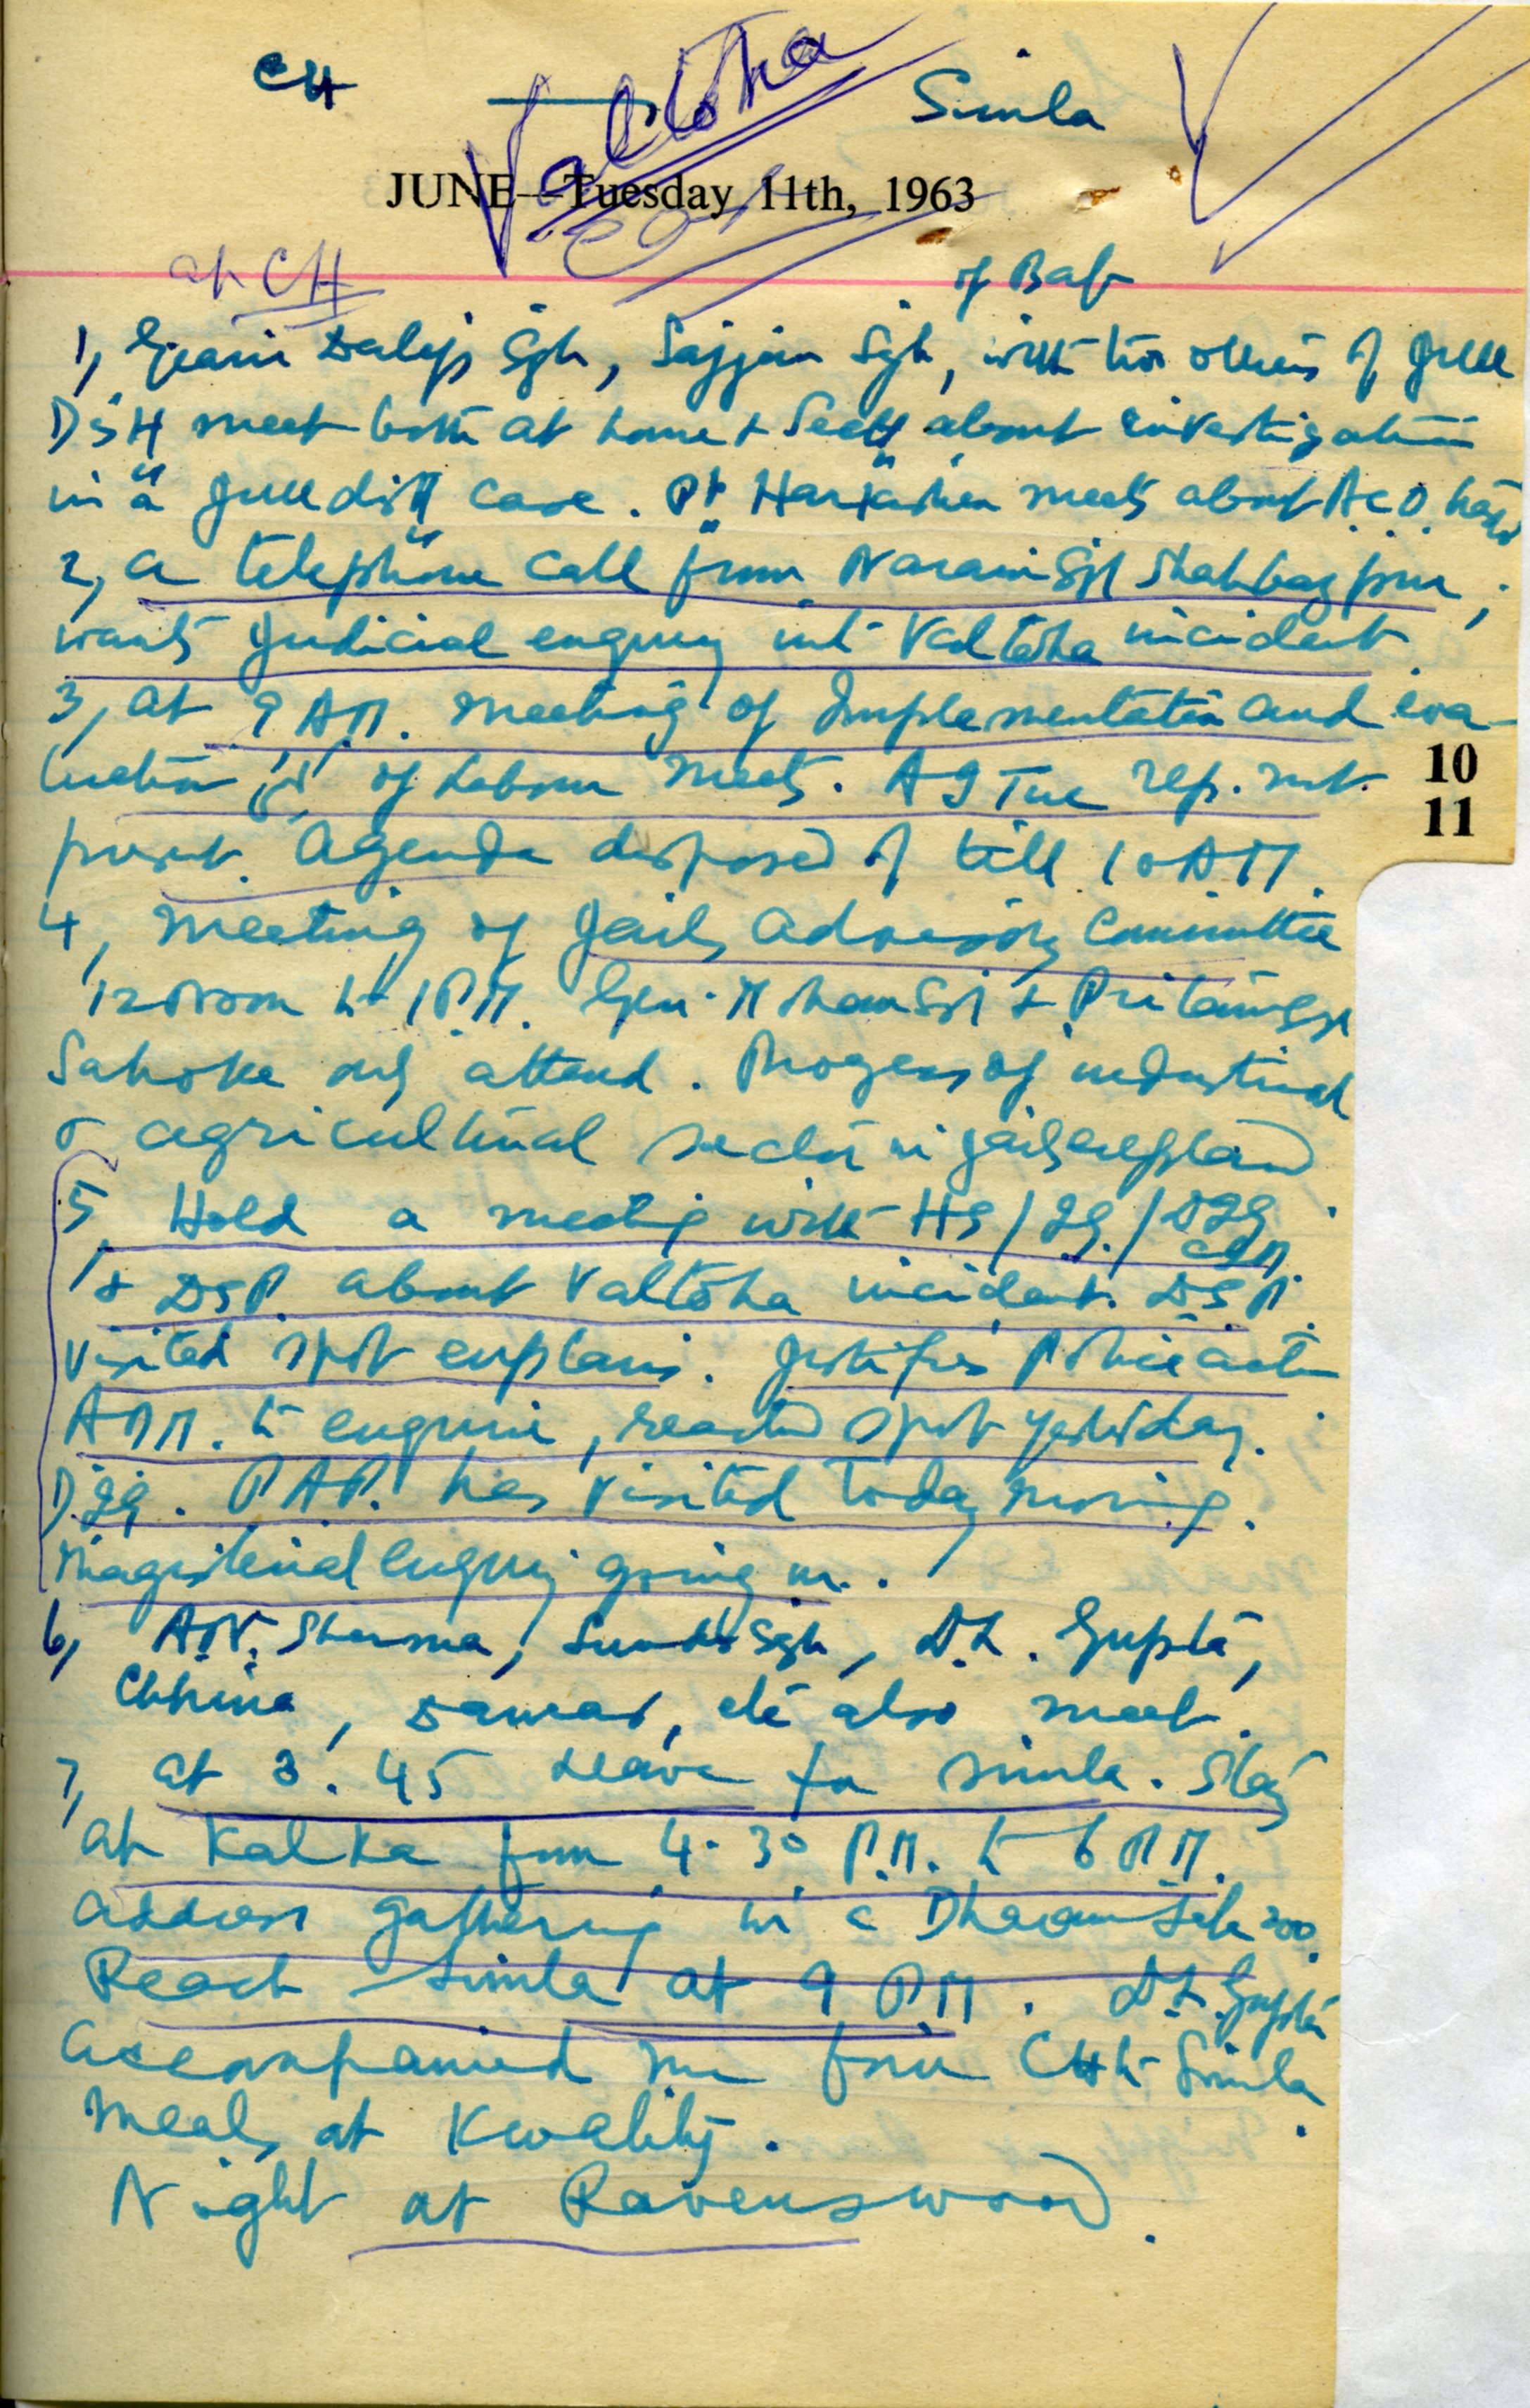 CH Simla
Valtoha
JUNE—Tuesday 11th, 1963
at CH
of Baf
1, Giani Dalip Sgh, Sajjan Sgh, with two others of Jull
Distt meet both at home & Sectt about investigation
in a Jull distt case. Pt Harkishen meets about
2, a telephone call from Narain Sgh Shahbazpur,
wants Judicial enquiry into Valtoha incident.
3, at 9 AM. meeting of Implementation and eva-
luation of Labour meets. AITUC rep. not
present. Agenda disposed of till 10 AM.
10
11
4, Meeting of Jails Advisory Committee
12 Noon to 1 P.M. Gen. Mohan Sgh & Pritam Sgh
Sahoke only attend. Progress of industrial
& agricultural sector in jails explained.
5, Hold a meeting with HS/IG/DIG
CID
& DSP. about Valtoha incident. DSP.
visited spot explains. Justifies Police action
ADM. to enquire, reached spot yesterday.
DIG. PAP. has visited today morning.
Magisterial enquiry going on.
6, Sharma, Sgh, D.L. Gupta,
Chhina, etc also meet.
7, at 3.45 Leave for Simla. Stay
at Kalka from 4.30 P.M. to 6 P.M.
Address gathering in a Dharamsala 200.
Reach Simla at 9 P.M. D.L. Gupta
accompanied me from CH to Simla.
Meals at Kwality.
Night at Ravenswood.